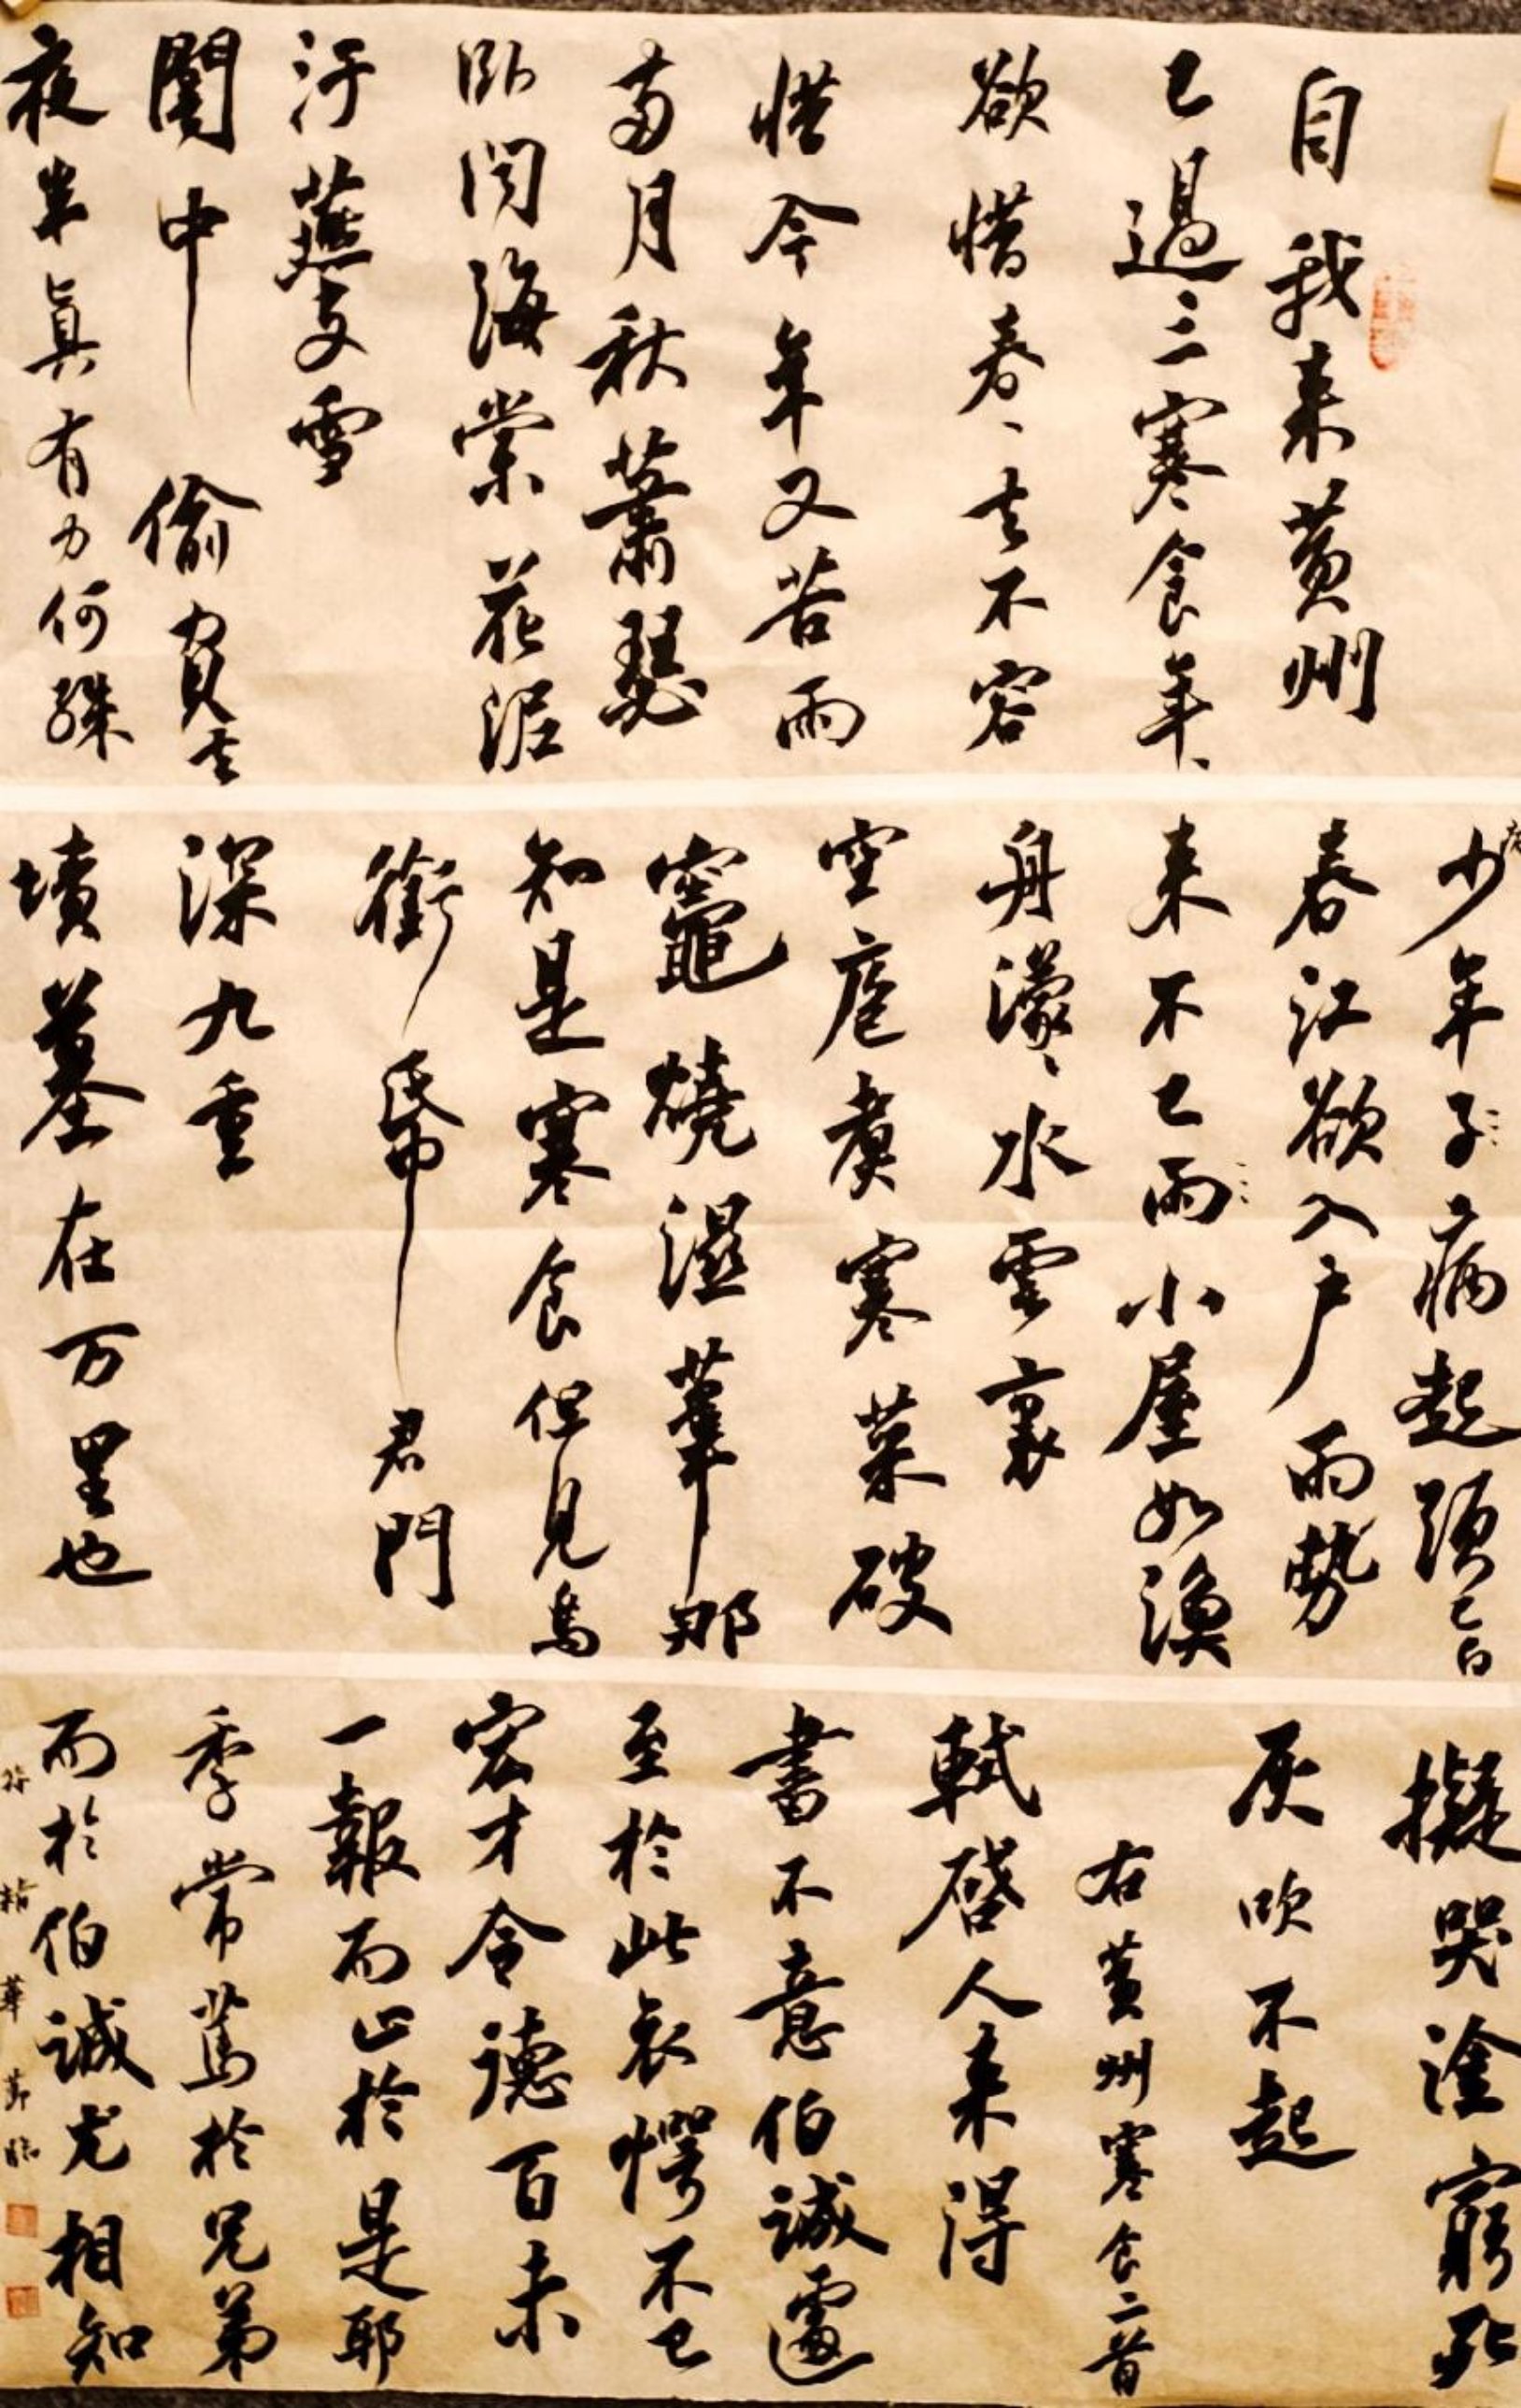 自我来黄州
已過三寒食年、
欲惜春、去不容
惜今年又苦雨
兩月秋蕭瑟
卧聞海棠花泥
汙燕支雪
闇中偷負去
夜半真有力何殊
病
少年子病起頭已白
春江欲入戶雨勢
来不已雨小屋如漁
舟濛、水雲裏
空庖煮寒菜破
竈燒濕葦那
知是寒食但見烏
銜帋君門
深九重
墳墓在万里也
擬哭塗窮死
灰吹不起
右黄州寒食二首
軾啓人来得
書不意伯誠遽
至於此哀愕不已
宏才令德百未
一報而止於是耶
季常篤於兄弟
而於伯誠尤相知